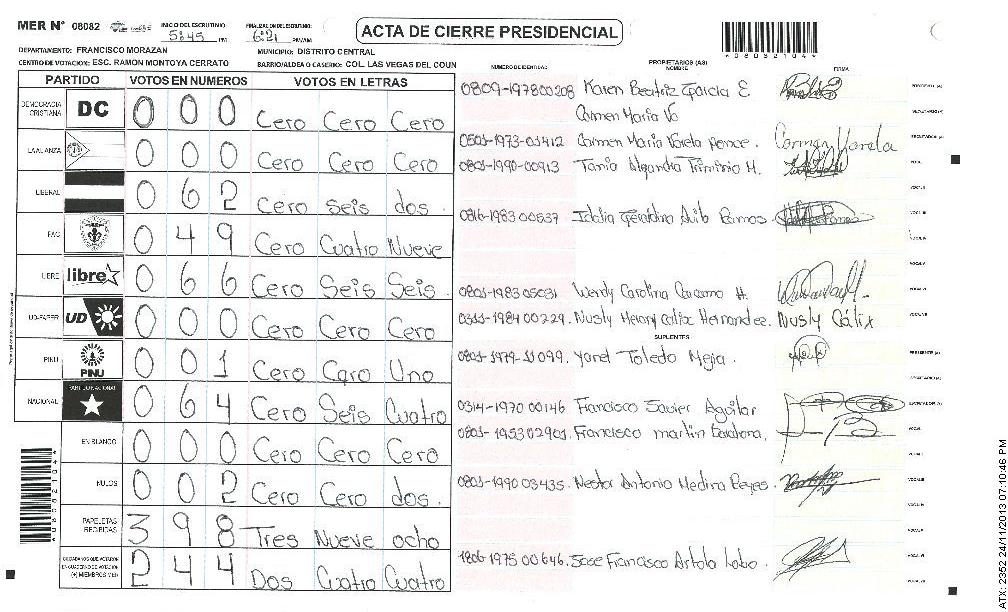 MER N° 08082 INICIO DEL ESCRUTINIO: 5:45 PM FINALIZACION ESCRUTINIO: 6:21 PM/AM
ACTA DE CIERRE PRESIDENCIAL
*08082104*
DEPARTAMENTO: FRANCISCO MORAZAN MUNICIPIO: DISTRITO CENTRAL
CENTRO DE VOTACION: ESC. RAMON MONTOYA CERRATO BARRIO/ALDEA O CASERIO: COL LAS VEGAS DEL COUN
PARTIDO VOTOS EN NUMEROS VOTOS EN LETRAS
DEMOCRACIA CRISTIANA DC 0 0 0 Cero Cero Cero
LA ALIANZA 0 0 0 Cero Cero Cero
LIBERAL 0 6 2 Cero Seis dos
PAC 0 4 9 Cero Cuatro Nueve
LIBRE libre 0 6 6 Cero Seis Seis
UD-FAPER UD 0 0 0 Cero Cero Cero
PINU PINU 0 0 1 Cero Cero Uno
NACIONAL PARTIDO NACIONAL 0 6 4 Cero Seis Cuatro
EN BLANCO 0 0 0 Cero Cero Cero
NULOS 0 0 2 Cero Cero dos.
PAPELETAS RECIBIDAS 3 9 8 Tres Nueve ocho
CIUDADANOS QUE VOTARON EN CUADERNO DE VOTACION (+) MIEMBROS MER 2 4 4 Dos Cuatro Cuatro
NUMERO DE IDENTIDAD PROPIETARIOS (AS) NOMBRE FIRMA
0809-197800208 Karen Beatriz Garcia E PRESIDENTE (A)
Carmen Maria Va
0501-1973-01412 Carmen Maria Varela Ponce. Carmen Varela SECRETARIO (A)
0801-1990-00913 Tania Alejandra Triminio H.
0816-1983 00537 Idalia Geraldina Avila Ramos
0801-1983 05031 Wendy Carolina Carcamo H.
0311-1984 00229. Nusly Herany Calix Hernandez. Nusly Cálix
SUPLENTES
0801-1979-11099. Yarel Toledo Mejia. PRESIDENTE (A)
0314-1970 00146 Francisco Javier Aguilar
0801-1953 02901. Francisco Martin Barahona,
0801-1990 03435. Nestor Antonio Medina Reyes.
1806-1975 00646. Jose Francisco Artola Lobo.
*08082104*
ATX: 2352 24/11/2013 07:10:46 PM